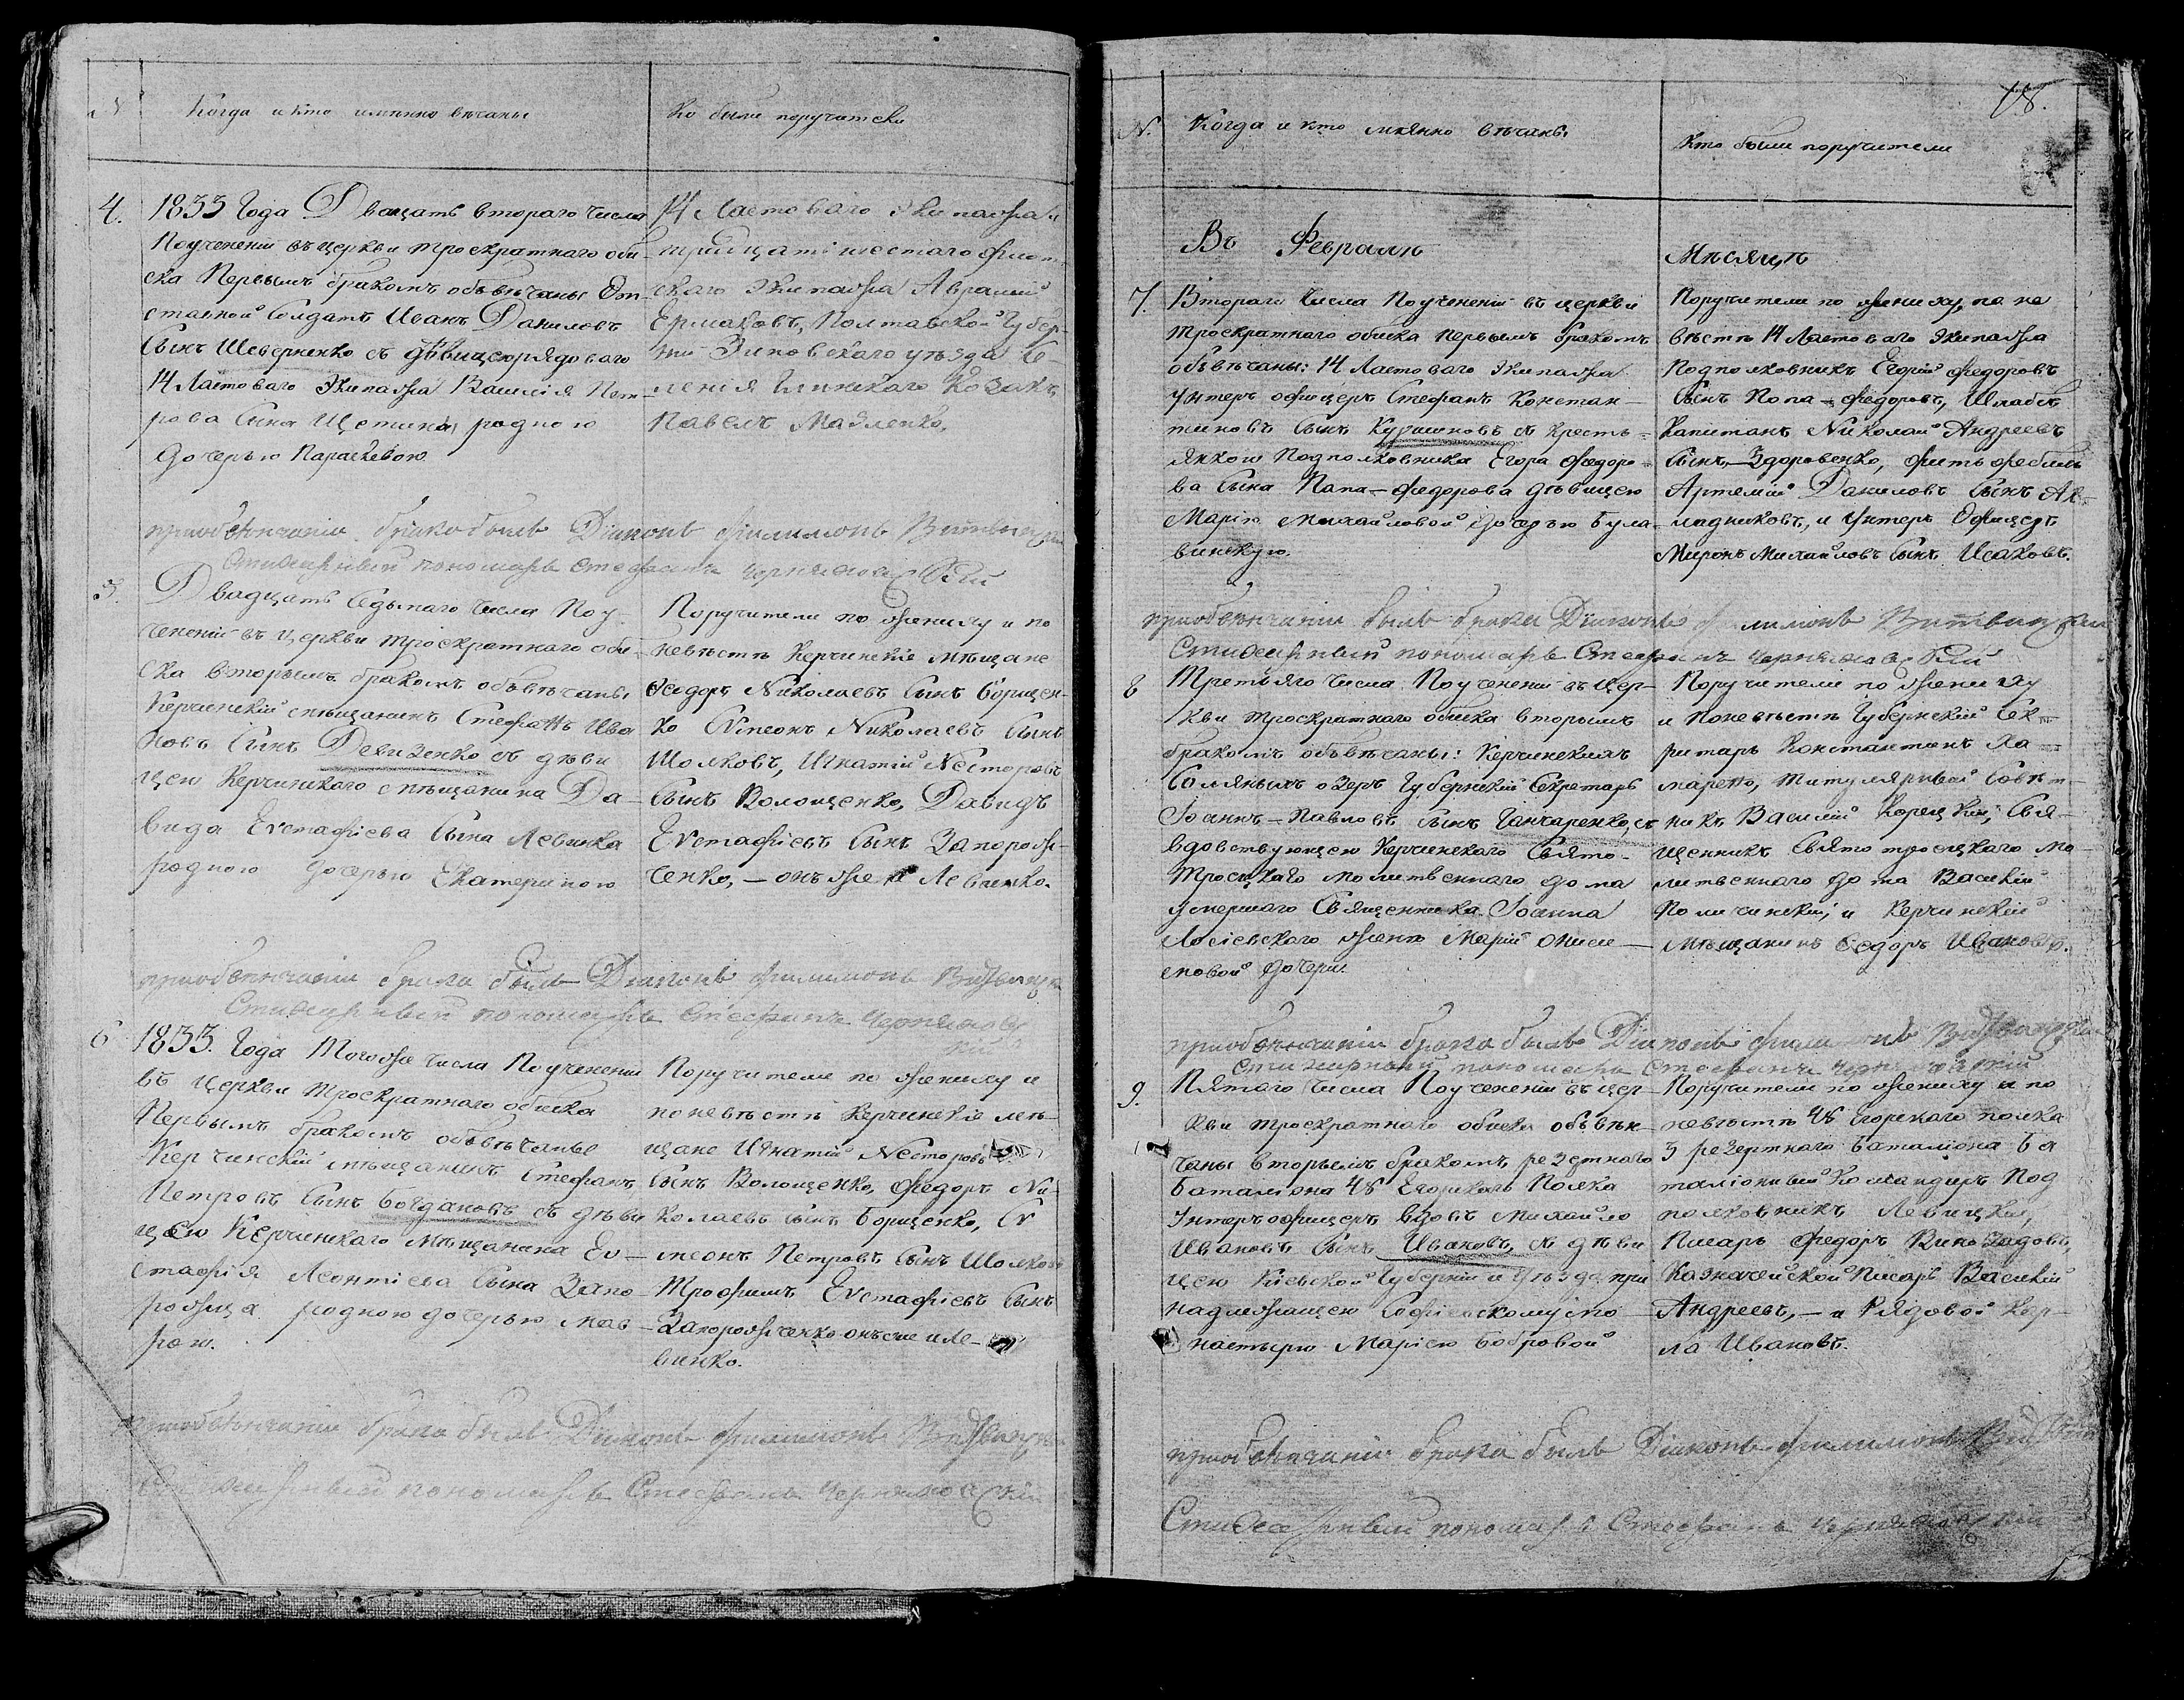 Когда и кто именно вѣчаны
Ко были поручители
4. 1833 Года Двацать втораго числа
Поучененіи въ церкви троекратнаго обы-
ска Первымъ бракомъ объвѣчаны От-
ставной Солдатъ Иванъ Даниловъ
Сынъ Шеверненко съ дѣвицею рядоваго
14 Ластоваго Экипажа Василія Пет-
рова Сына Щетины родною
дочерью Параскевою.
14 Ластоваго Экипажа и
тритцать шестаго флот-
скаго Экипажа Аврамий
Ермаковъ, Полтавской Губер-
ніи Зиновскаго уѣзда Се-
ленія Глинскаго Козакъ
Павелъ Мадленко.
приобвѣнчаніи брака былъ Діаконъ Филимонъ
Стихарный пономарь Стефанъ Чернявскій
Двадцать седьмаго числа Поу-
чененіи въ церкви троекратнаго обы-
ска вторымъ бракомъ объвѣчаны
Керченскій мѣщанинъ Стефанъ Ива
новъ Сынъ Девизенко съ дѣви
цею Керчинскаго мѣщанина Да-
вида Еѵстафіева Сына Левинка
родною дочерью Екатериною
Поручители по жениху и по
невѣстѣ Керчинскіе мѣщане
Ѳедоръ Николаевъ Сынъ Борищен-
ко Сѵмеонъ Николаевъ Сынъ
Шолковъ, Игнатій Несторовъ
Сынъ Волощенко, Давидъ
Еѵстафіевъ Сынъ Запорож-
ченко, — онъ же и Левинко.
приобвѣнчаніи брака былъ Діаконъ Филимонъ
Стихарный пономарь Стефанъ Чернявс
кій
6 1833. Года Тогоже числа Поучененіи
въ церкви троекратнаго обыска
Первымъ бракомъ объвѣчаны
Керчинскій мѣщанинъ Стефанъ
Петровъ Сынъ Богдановъ съ дѣви
цею Керчинскаго мѣщанина Еѵ-
стафія Леонтіева Сына Запо-
рожца родною дочерью Мав-
рою.
Поручители по жениху и
поневѣстѣ Керчинскіе мѣ-
щане Игнатій Несторовъ
Сынъ Волощенко, Федоръ Ни-
колаевъ сынъ Борищенко, Сѵ
меонъ Петровъ Сынъ Шолковъ
Трофимъ Еѵстафіевъ Сынъ
Запорожченко онъ же и Ле-
винко.
приобвѣнчаніи брака былъ Діаконъ Филимонъ
Стихарный пономарь Стефанъ Чернявскій
18.
N. Когда и кто имянно вѣчаны
Кто были поручители
Въ Февралѣ
Мѣсяцѣ
7. Втораго числа Поучененіи въ церкви
троекратнаго обыска первымъ бракомъ
объвѣчаны: 14 Ластоваго Экипажа
Унтеръ офицеръ Стефанъ Констан-
тиновъ сынъ Курашновъ съ кресть-
янкою Подполковника Егора Федоро-
ва Сына Папа-Федорова дѣвицею
Маріею Михайловой дочерью Була-
винскую.
Поручители по жениху, по не
вѣстѣ 14 Ластоваго Экипажа
Подполковникъ Егорій Федоровъ
Сынъ Попа-Федоровъ, Штабсъ
Капитанъ Николай Андреевъ
Сынъ Здоровенко, фельтфебель
Артемій Даниловъ Сынъ Ак-
ладниковъ, и Унтеръ Офицеръ
Миронъ Михайловъ Сынъ Исаковъ.
приобвѣнчаніи былъ брака Діаконъ Филимонъ
Стихарный пономарь Стефанъ Чернявскій
8 Третьяго числа Поучененіи въ цер-
кви троекратнаго обыска вторымъ
бракомъ объвѣчаны: Керчинскихъ
Соляныхъ озеръ Губернскій Секретарь
Іоаннъ-Павловъ сынъ Ганчаренко, съ
вдовствующею Керчинскаго Свято-
Троицкаго молитвеннаго дома
умершаго Священника Іоанна
Лосіевскаго женѣ Маріи Ониси-
мовой дочери.
Поручители по жениху
и Поневѣстѣ Губернскій Сек-
ритарь Константинъ Ха-
марето, титулярный Совѣт-
никъ Василій Корецкій, Свя-
щенникъ Свято троецкаго мо-
литвеннаго дома Василій
Поличинскій, и Керчинскій
мѣщанинъ Ѳедоръ Ивановъ.
приобвѣнчаніи брака былъ Діаконъ Филимонъ
Стихарный пономарь Стефанъ
9. Пятаго числа Поучененіи въ цер-
кви троекратнаго обыска объвѣн-
чаны вторымъ бракомъ резетнаго
Баталіона 48 Егорскаго Полка
Унтеръ офицеръ вдовъ Михайло
Ивановъ Сынъ Ивановъ, съ дѣви
цею Кіевской Губерніи и Уѣзда при
надлежащею Софіевскому мо
настырю Маріею Бобровой
Поручители по жениху и по
невѣстѣ 48 Егорскаго полка
3 резертнаго баталіона Ба
таліонный Командиръ Под
полковникъ Левицкій,
Писарь Федоръ Виноградовъ,
Казначейской Писарь Василій
Андреевъ, — и Рядовой Кир-
ла Ивановъ.
приобвѣнчаніи брака былъ Діаконъ Филимонъ
Стихарный пономарь Стефанъ Чернявскій